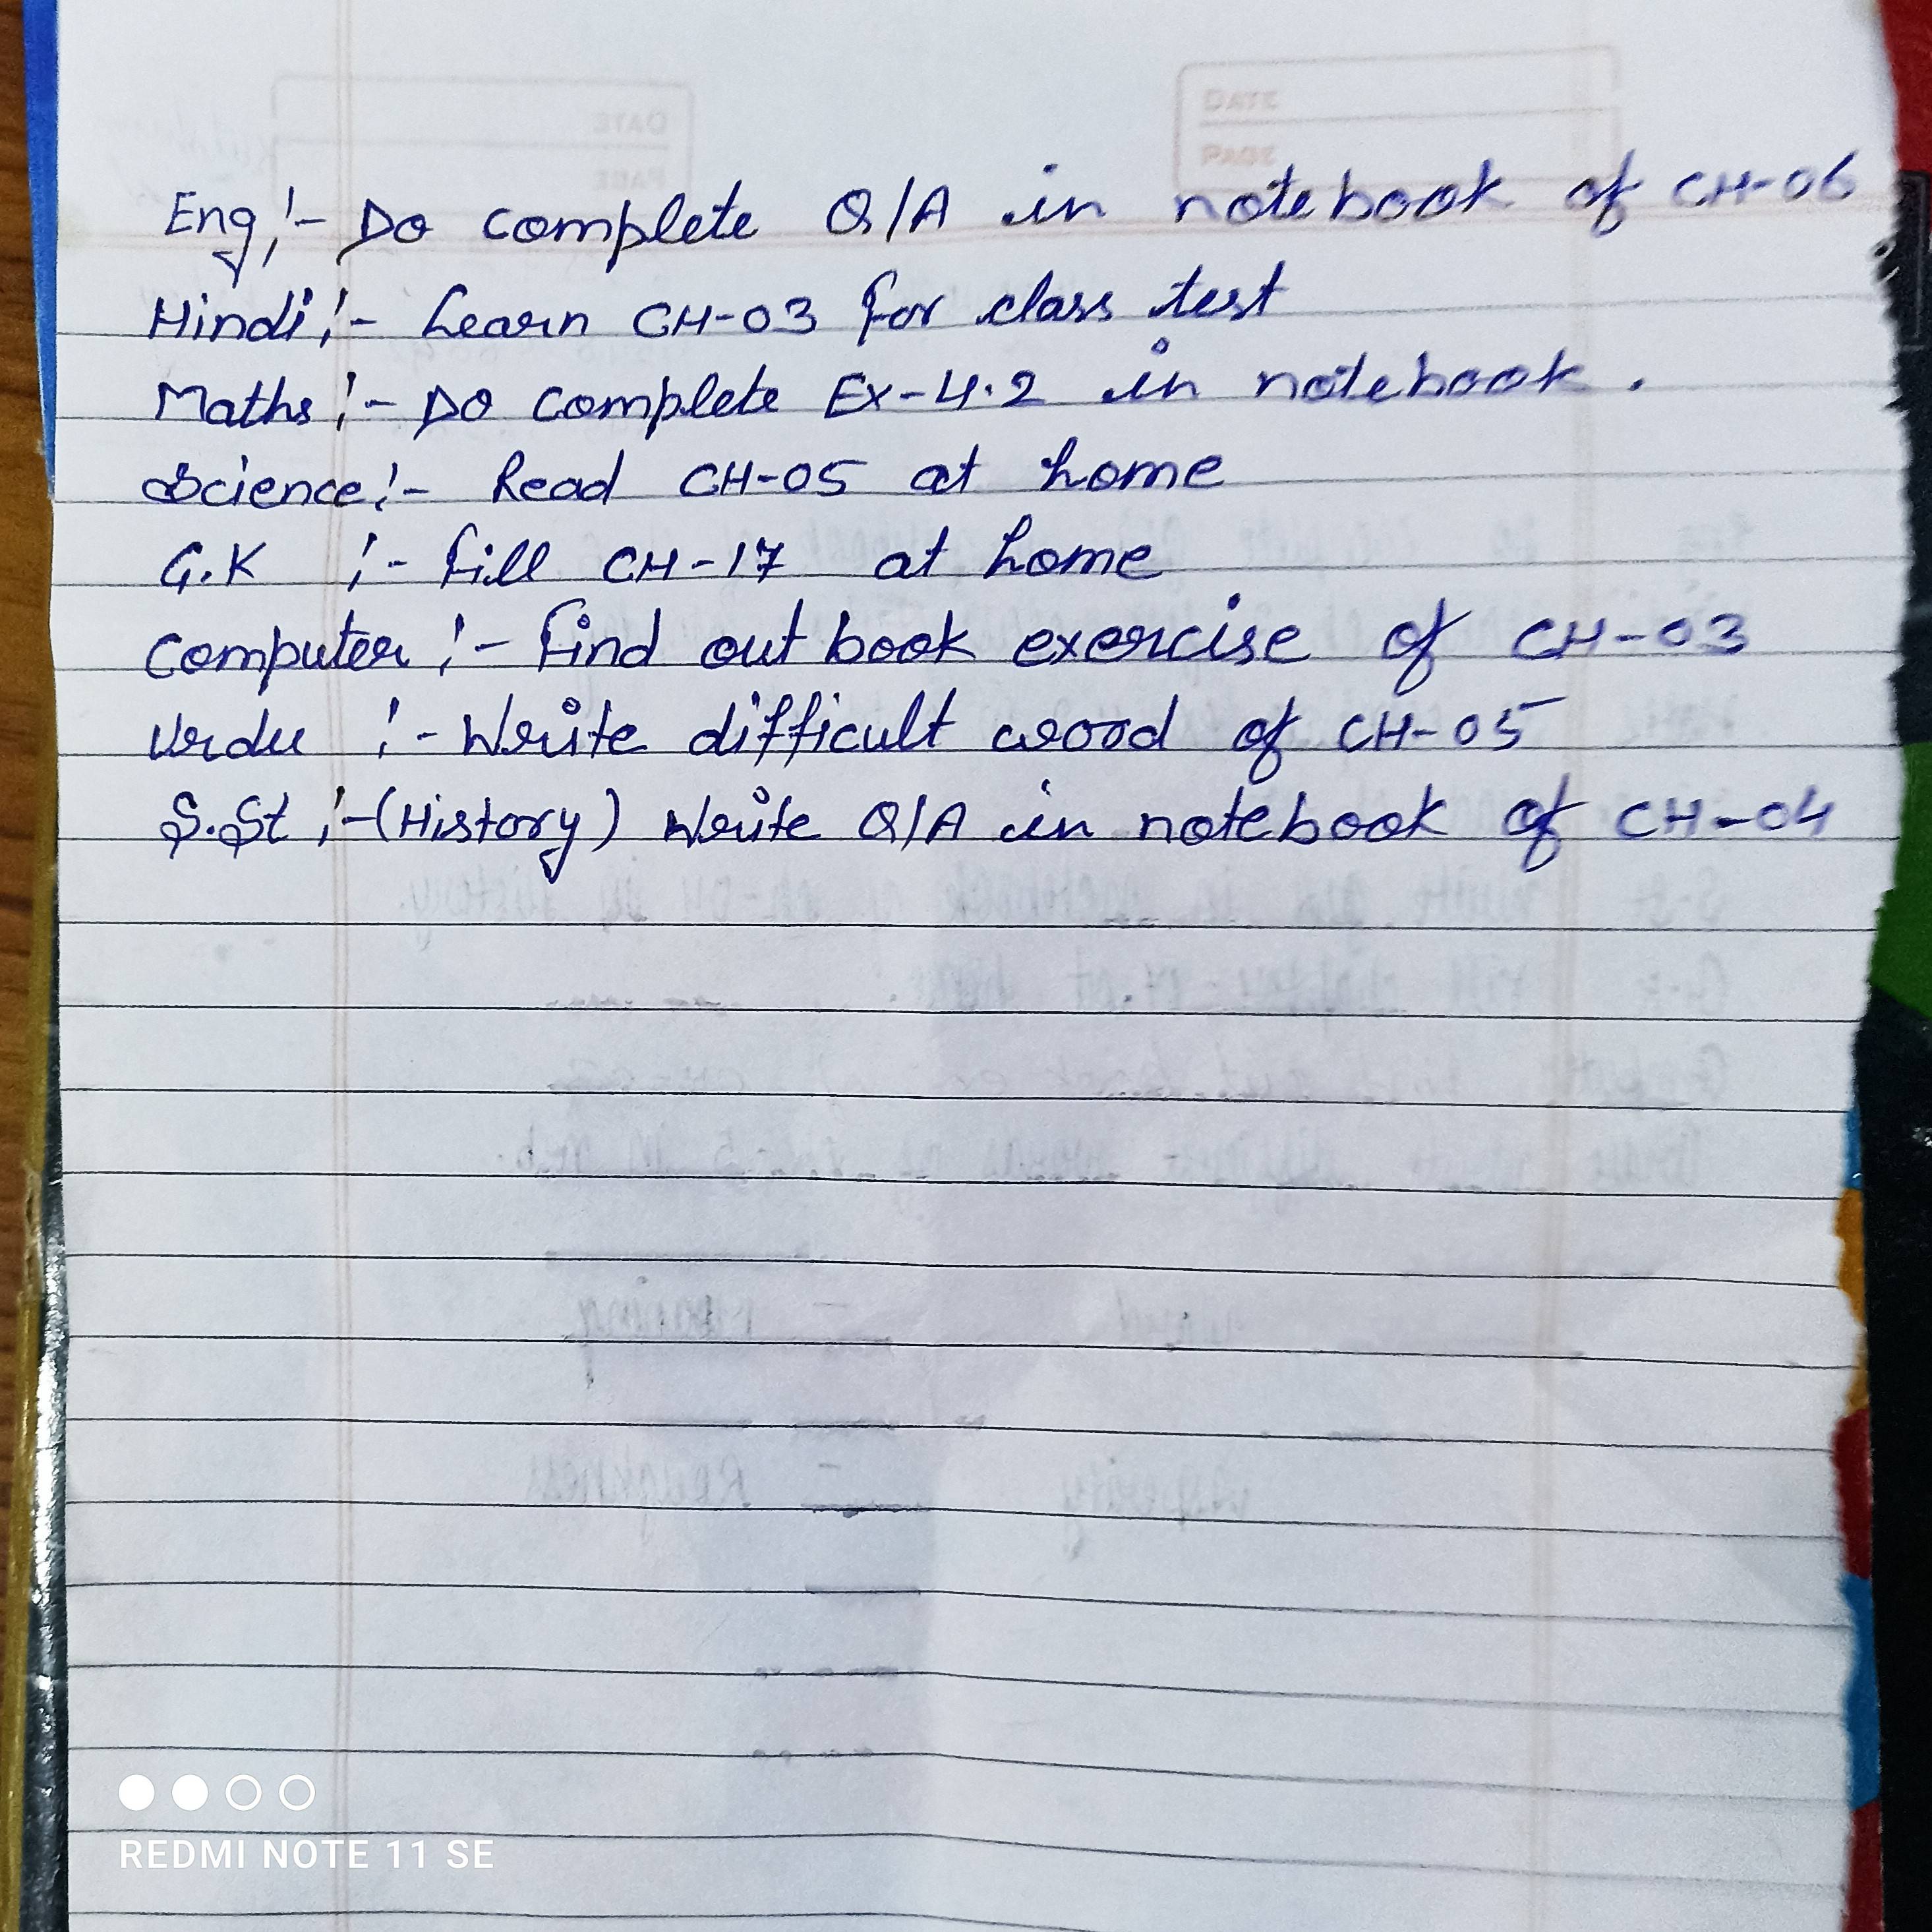 DATE
PAGE
Eng:- Do complete Q/A in notebook of CH-06
Hindi:- Learn CH-03 for class test
Maths:- Do complete Ex-4.2 in notebook.
Science:- Read CH-05 at home
G.K :- Fill CH-17 at home
Computer:- Find out book exercise of CH-03
Urdu :- Write difficult word of CH-05
S.St:-(History) Write Q/A in notebook of CH-04
REDMI NOTE 11 SE